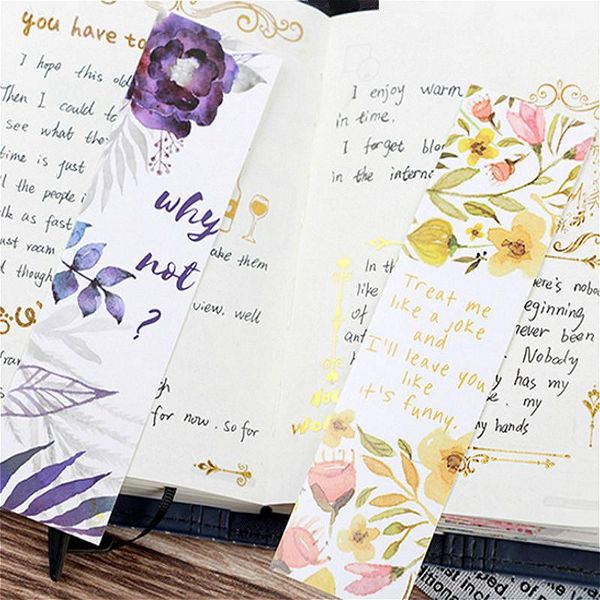 you have to
I hope this old
Then I could to
see what tho
time is just
ll the people i
lk as fast
just roam
d though
ake them
view. well
far
for now. so far
why
not
?
I enjoy warm
in time.
I forget blo
in the interne
In th
like
of
there's no
beginning
never been
Nobody
y has my
my hands
Treat me
like a joke
and
I'll leave you
like
it's funny.